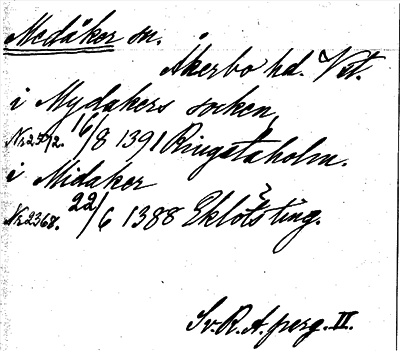 Medåker sn.
Åkerbo hd. Vstl.
i Mydakers socken
Nr 2592. 16/8 1391 Ringstaholm.
i Midaker
Nr 2368. 22/6 1388 Eklötsting.
Sv. R. A. perg. II.